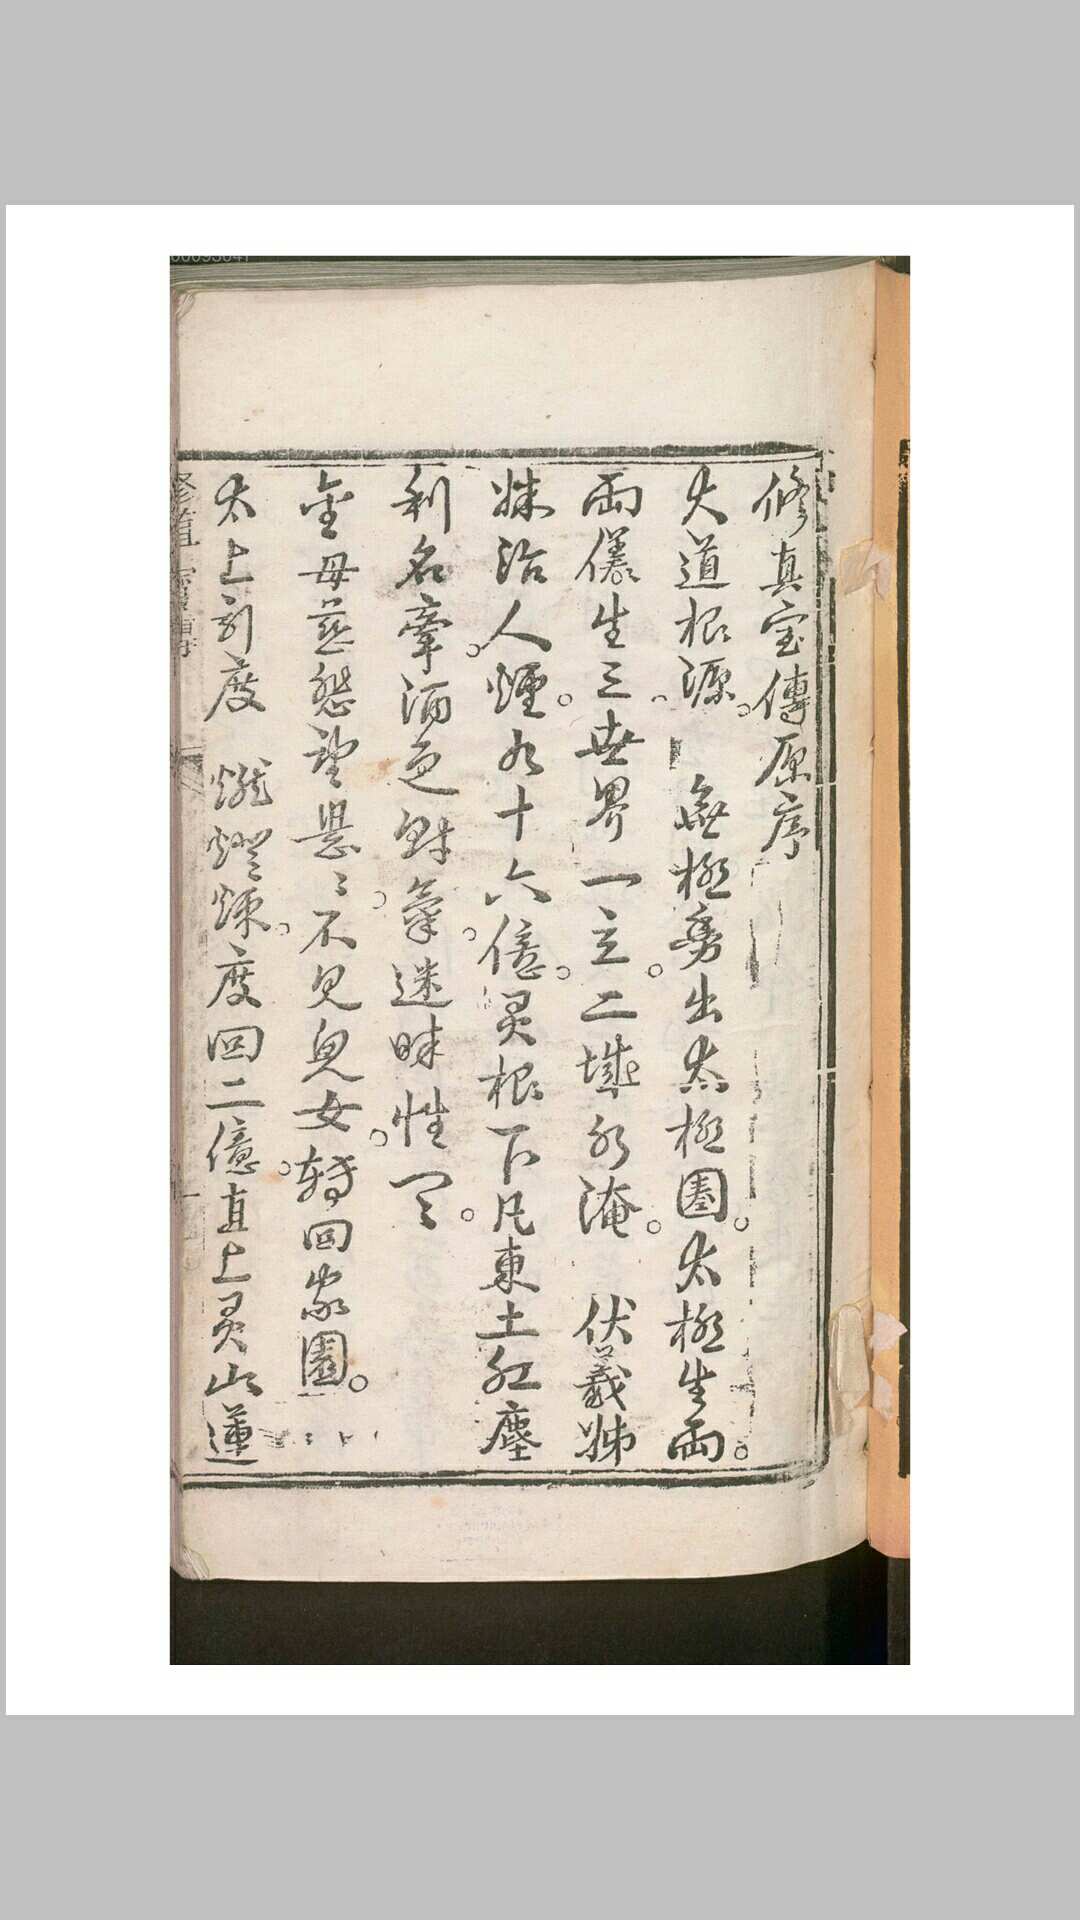 修真宝傳原序
大道根源。無極勇出太極圈。太極生兩。
兩儀生三世界一立。二壚水淹。伏羲姊
妹治人煙。九十六億。灵根下凡東土紅塵
利名牽。酒色財氣。迷昧性天。
金母慈愁望暴〻。不見兒女。轉回家園。
太上初度 燃燈煉。度回二億。直上灵山蓮
修道